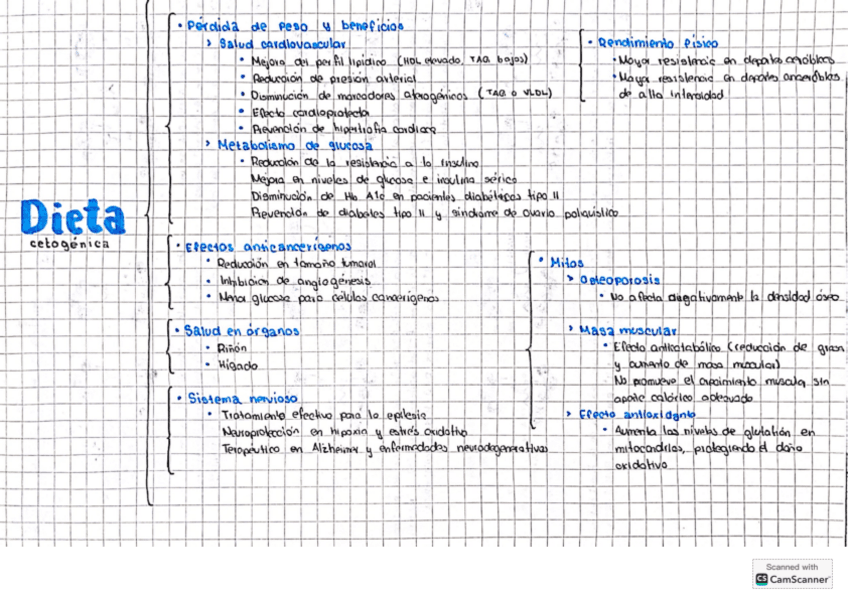 Dieta
cetogénica
• Pérdida de peso y beneficios
› Salud cardiovascular
• Mejora del perfil lipídico (HDL elevado, TAG bajos)
• Reducción de presión arterial
• Disminución de marcadores aterogéninos (TAG o VLDL)
• Efecto cardioprotector
• Prevención de hipertrofia cardiaca
› Metabolismo de glucosa
• Reducción de la resistencia a la insulina
Mejora en niveles de glucosa e insulina sérica
Disminución de Hb A1c en pacientes diabéticos tipo II
Prevención de diabetes tipo II y síndrome de ovario poliquístico
• Rendimiento físico
• Mayor resistencia en deportes aeróbicos
• Mayor resistencia en deportes anaeróbicos
de alta intensidad
• Efectos anticancerígenos
• Reducción en tamaño tumoral
• Inhibición de angiogénesis
• Menor glucosa para células cancerígenas
• Salud en órganos
• Riñón
• Hígado
• Sistema nervioso
• Tratamiento efectivo para la epilepsia
Neuroprotección en hipoxia y estrés oxidativo
Terapéutico en Alzheimer y enfermedades neurodegenerativas
• Mitos
› Osteoporosis
• No afecta negativamente la densidad ósea
› Masa muscular
• Efecto anticatabólico (reducción de grasa
y aumento de masa muscular)
No promueve el crecimiento muscular sin
aporte calórico adecuado
› Efecto antioxidante
• Aumenta los niveles de glutatión en
mitocondrias, protegiendo el daño
oxidativo
Scanned with
CS CamScanner